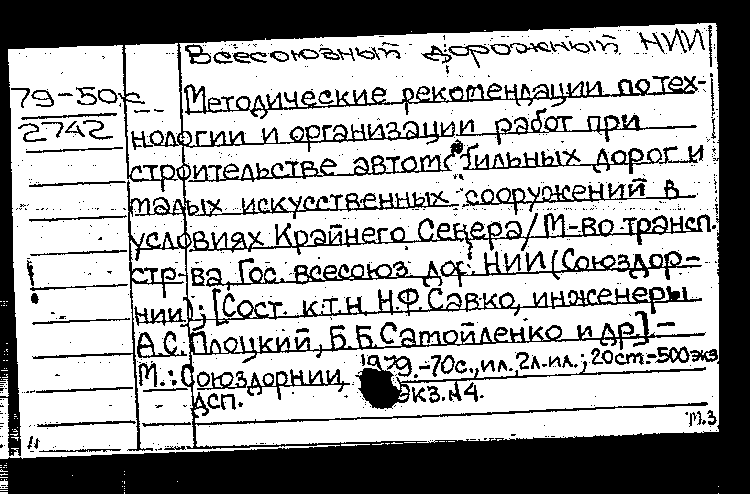 Всесоюзный дорожный НИИ
79-50с
2742
Методические рекомендации по тех-
нологии и организации работ при
строительстве автомобильных дорог и
малых искусственных сооружений в
условиях Крайнего Севера/М-во трансп.
стр-ва, Гос. всесоюз. дор. НИИ (Союздор-
нии); [Сост. к.т.н. Н.Ф.Савко, инженеры
А.С.Плоцкий, Б.Б.Самойленко и др.].-
М.: Союздорнии, 1979.-70с., ил., 2л.ил.; 20см.-500экз
ДСП. Экз.№4.
м.3